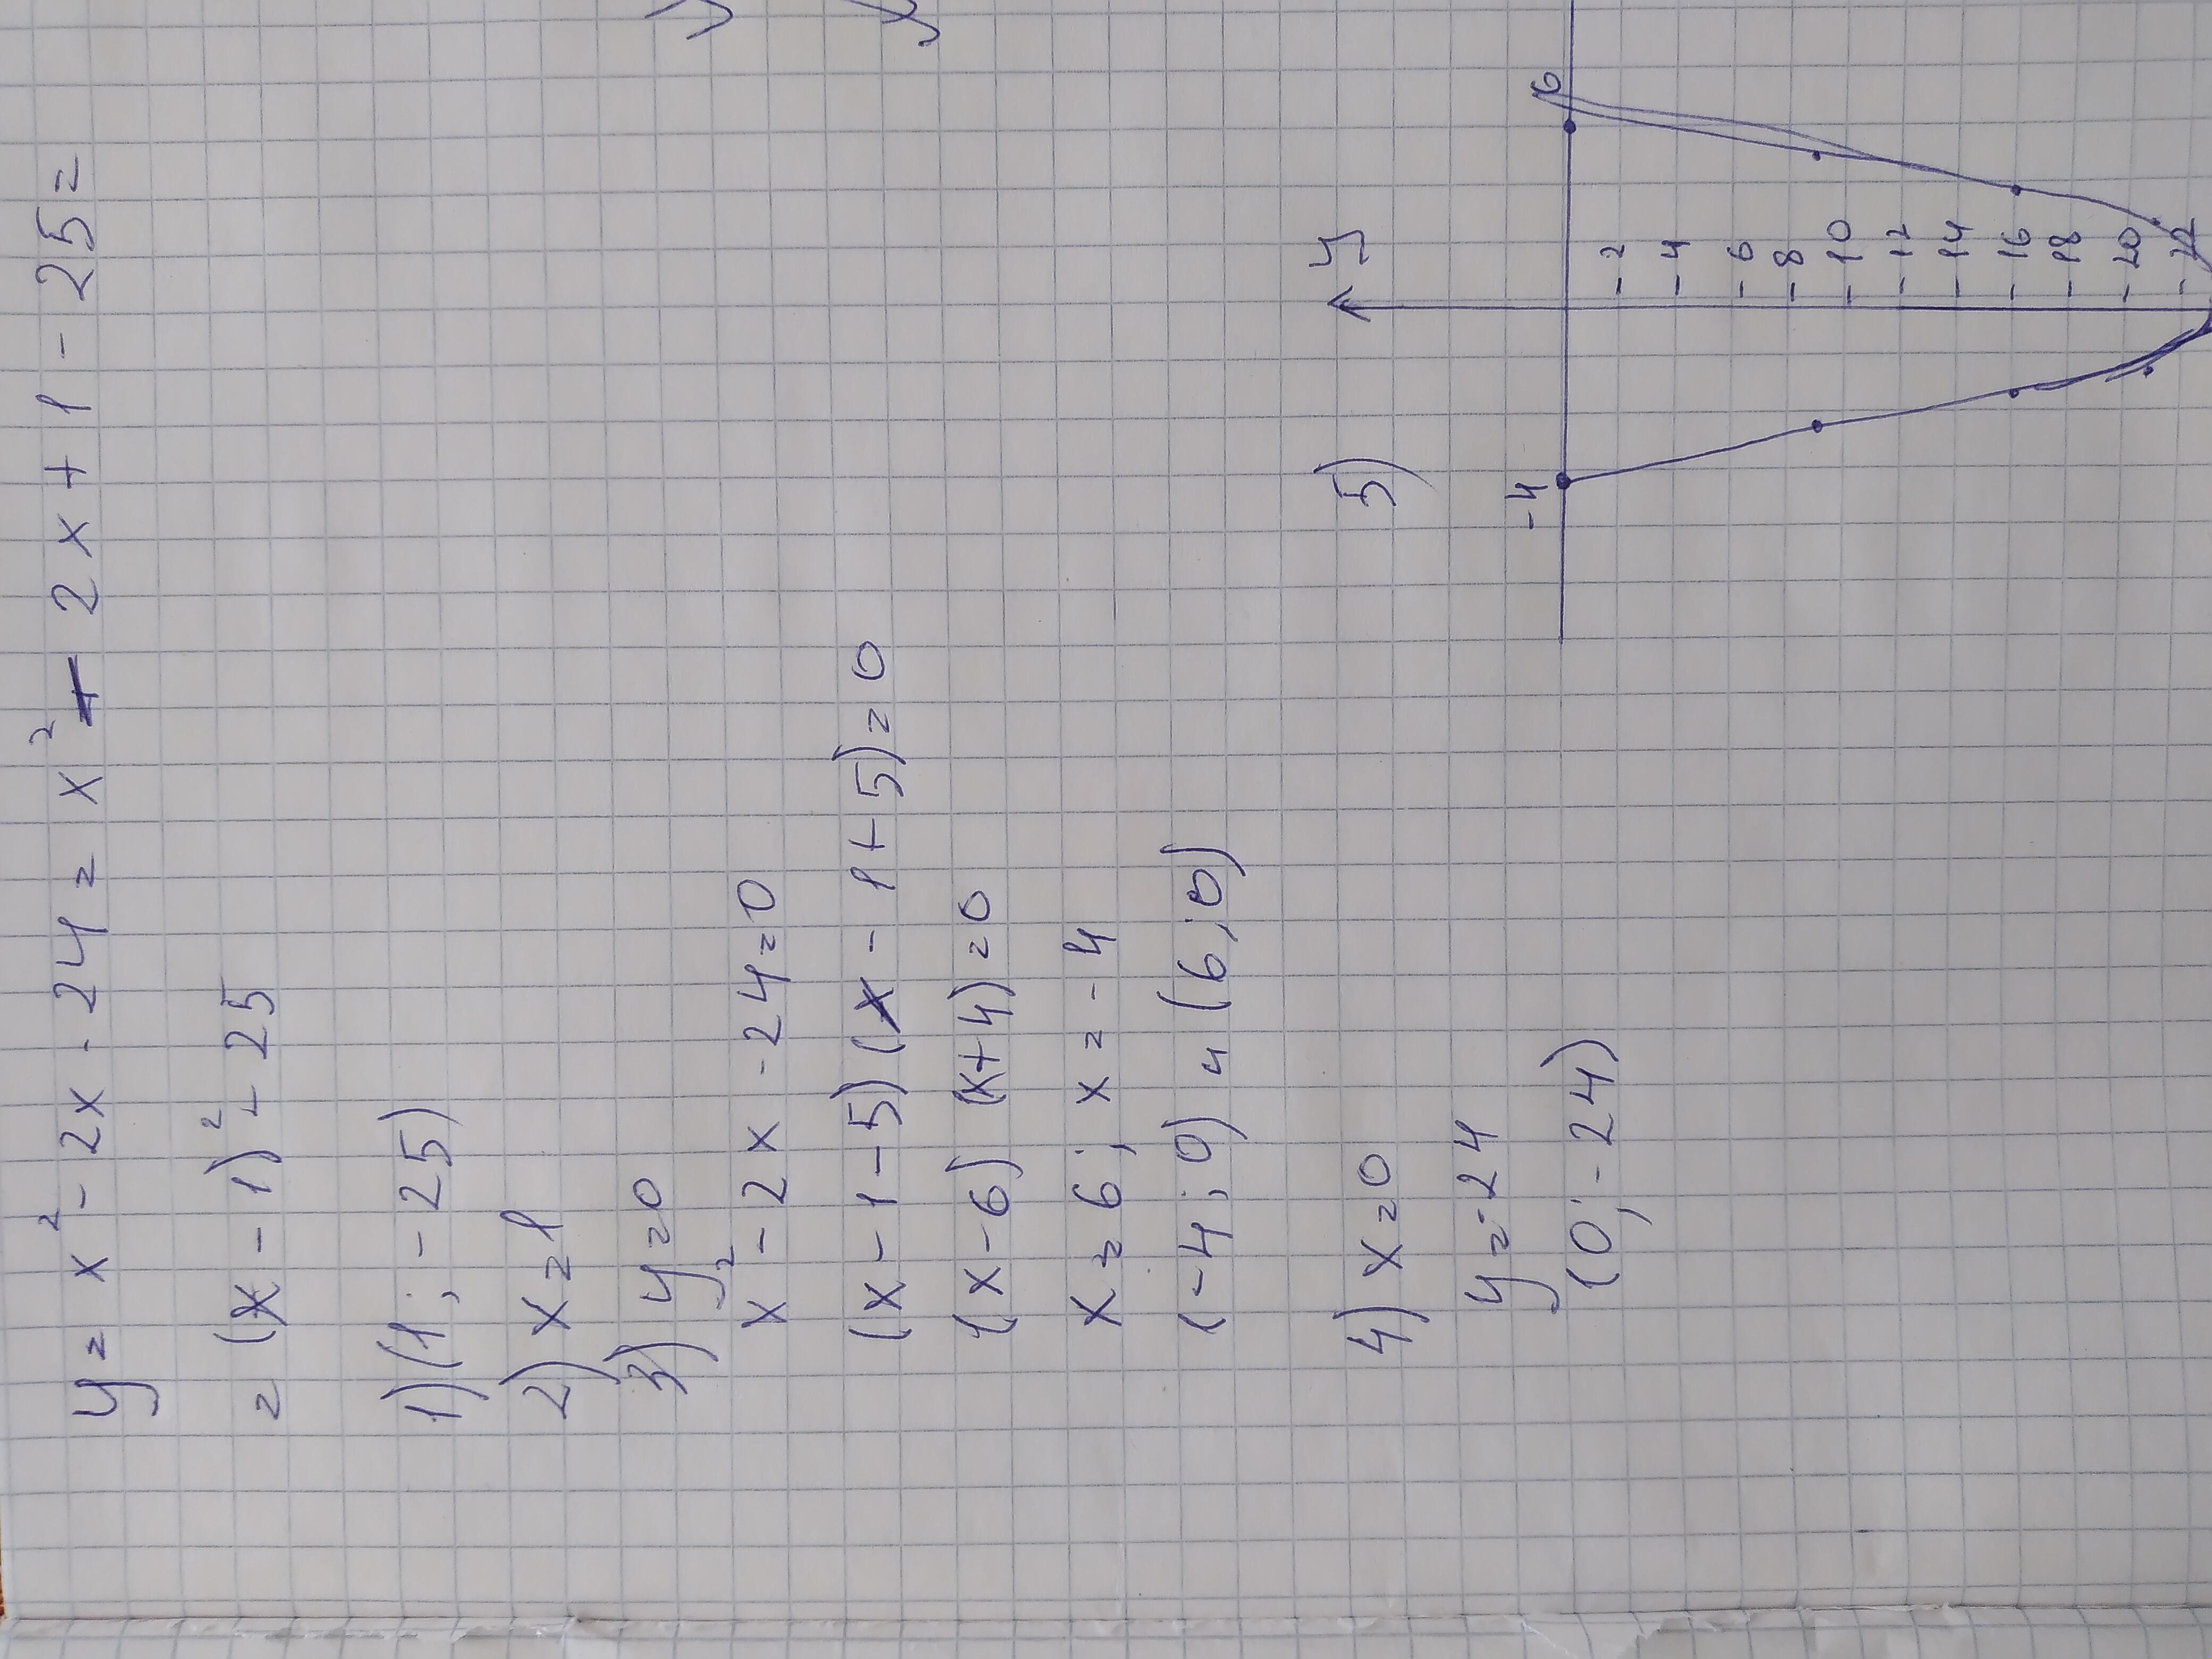 y = x² - 2x - 24 = x² - 2x + 1 - 25 =
= (x - 1)² - 25
1) (1 ; - 25)
2) x = 1
3) y = 0
x² - 2x - 24 = 0
(x - 1 - 5) (x - 1 + 5) = 0
(x - 6) (x + 4) = 0
x = 6 ; x = - 4
(-4 ; 0) и (6 ; 0)
4) x = 0
y = -24
(0 ; -24)
5)
y
-4
6
-2
-4
-6
-8
-10
-12
-14
-16
-18
-20
-22